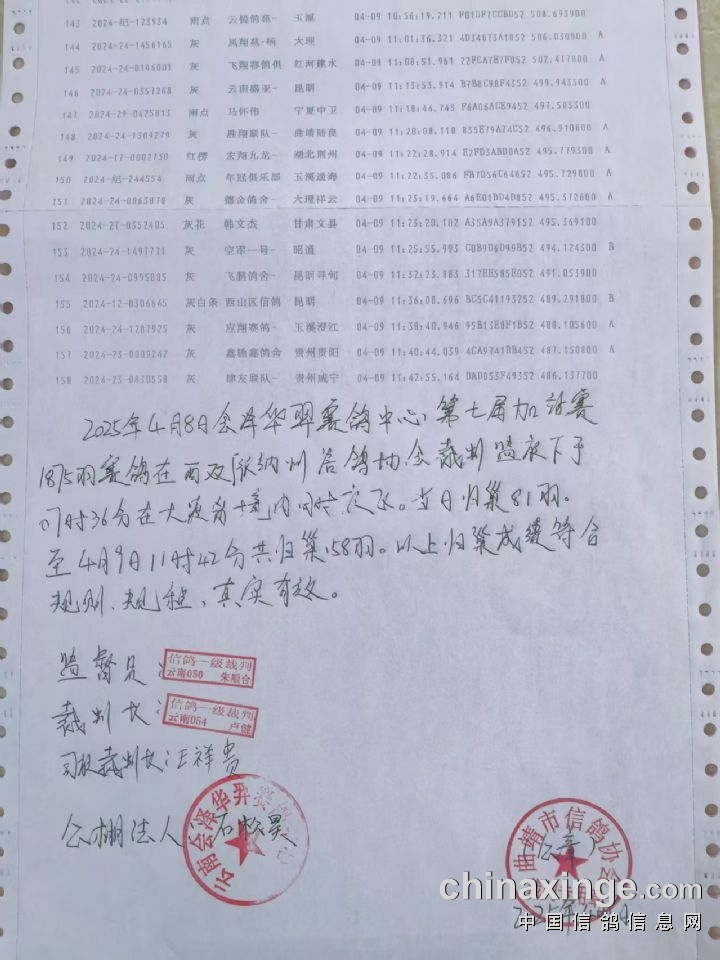 143 2024-纪-123934 雨点 云锐鸽苑- 玉溪 04-09 10:56:19.211 508.693900
144 2024-24-1456165 灰 凤翔燕-杨 大理 04-09 11:01:36.321 4D34873A1852 506.030900 A
145 2024-24-0146001 灰 飞翔赛鸽俱 红河建水 04-09 11:08:51.961 22FCA7E7F852 502.417800 A
146 2024-24-0357268 灰 云南盛亚- 昆明 04-09 11:13:53.914 B7B8C98F4352 499.943500
147 2024-29-0675813 雨点 马怀伟 宁夏中卫 04-09 11:18:44.743 F6A06ACE9452 497.583300
148 2024-24-1309279 灰 胜翔联队- 曲靖陆良 04-09 11:20:08.110 835E79A74C52 496.910800 A
149 2024-17-0002730 红楞 宏翔九龙- 湖北荆州 04-09 11:22:28.914 E2FD3ABD0A52 495.779300
150 2024-纪-244554 雨点 年冠俱乐部 玉溪通海 04-09 11:22:35.086 FB7D56C64852 495.729800 A
151 2024-24-0863878 灰 德金鸽舍- 大理祥云 04-09 11:23:19.664 A6E01BD4D852 495.372600 A
152 2024-27-0352405 灰花 韩文杰 甘肃文县 04-09 11:23:20.102 A35A9A379152 495.369100
153 2024-24-1497771 灰 空军一号- 昭通 04-09 11:25:55.993 C0B9D6D99B52 494.124300 B
154 2024-24-0995085 灰 飞鹏鸽舍- 昆明寻甸 04-09 11:32:23.883 317EE585E052 491.053900
155 2024-12-0306645 灰白条 西山区信鸽 昆明 04-09 11:36:08.696 BC5C41193252 489.291800 B
156 2024-24-1287925 灰 应翔赛鸽- 玉溪澄江 04-09 11:38:40.946 95B13E0F1B52 488.105600 A
157 2024-23-0009242 灰 鑫驰鑫鸽舍 贵州贵阳 04-09 11:40:44.039 4CA9741DB452 487.150800 A
158 2024-23-0830558 灰 肆友联队- 贵州威宁 04-09 11:42:55.164 DAD053F49352 486.137700
2025年4月8日会泽华羿赛鸽中心第七届加站赛
1875羽赛鸽在西双版纳州信鸽协会裁判监放下于
07时36分在大渡岗境内同时放飞。当日归巢81羽。
至4月9日11时42分共归巢158羽。以上归巢成绩符合
规则、规程、真实有效。
监督员: 信鸽一级裁判
云南050 朱顺合
裁判长: 信鸽一级裁判
云南054 卢健
司放裁判长:王祥贵
公棚法人
云南会泽华羿赛鸽中心
曲靖市信鸽协会
chinaxinge.com
中国信鸽信息网